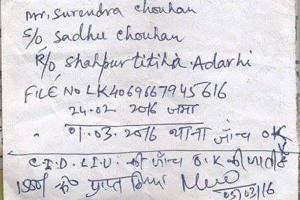 Mr. Surendra Chouhan
S/o Sadhu Chouhan
R/o Shahpur titiha. Adarhi
FILE No LK4069667945616
24-02 2016 जमा
01-03-2016 थाना जाँच OK
C.I.D. L.I.U. की जाँच O.K की
1500/ को प्राप्त किया
05/03/16